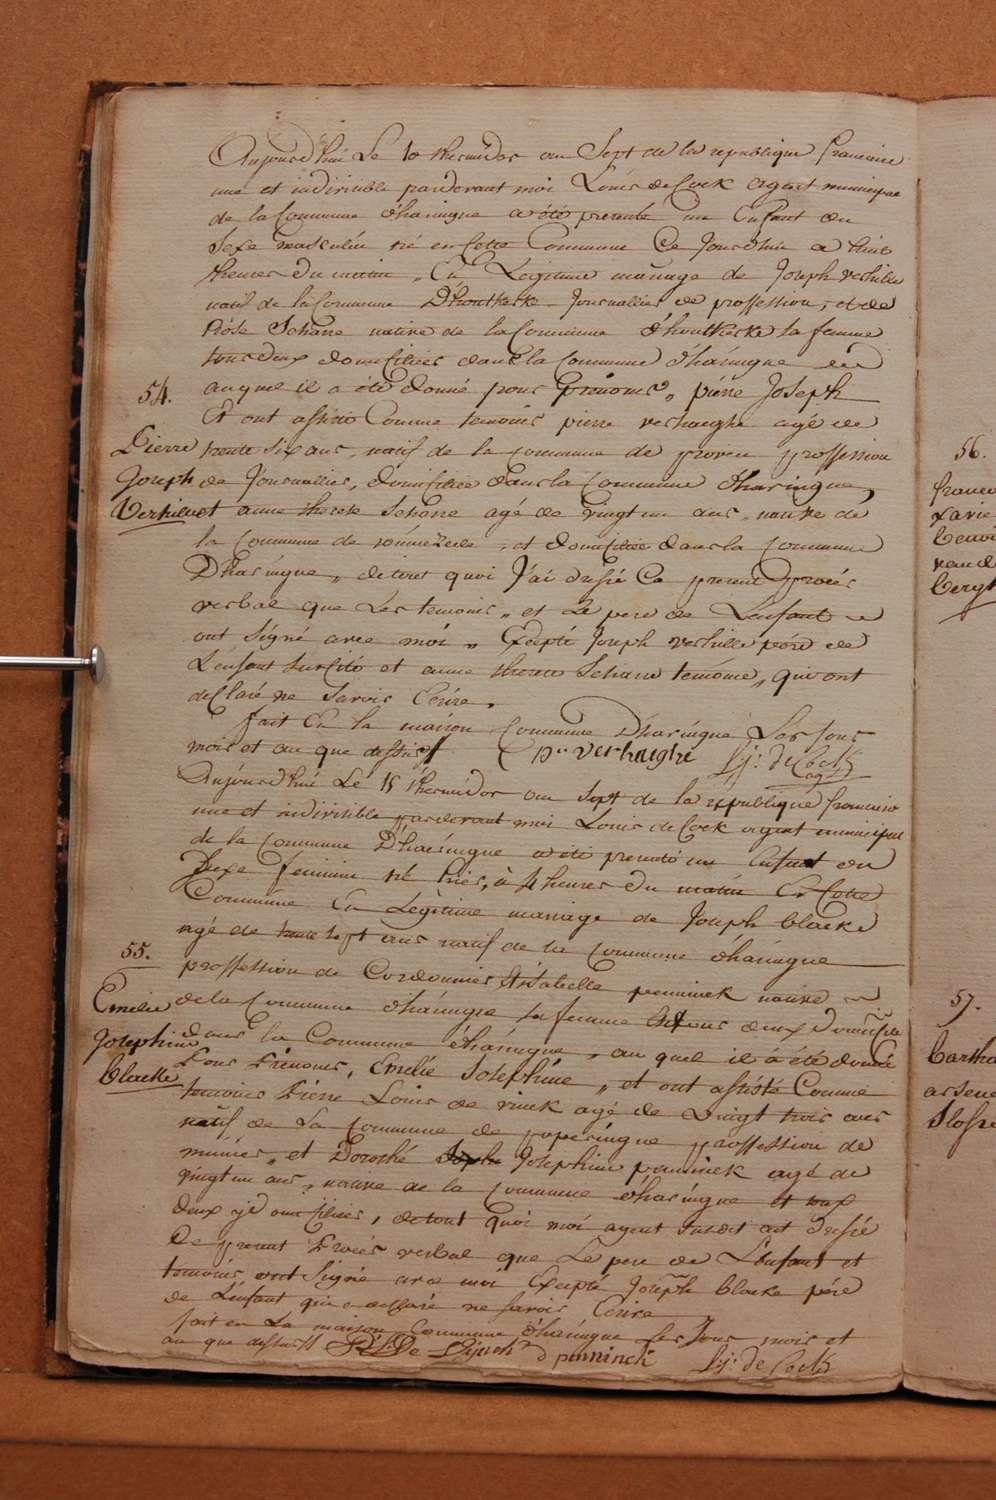 Aujourd'hui Le 10 thermidor an Sept de la republique francaise
une et indivisible pardevant moi Louis de Cock agent municipae
de la Commune d'haringue a été presente un Enfant du
Sexe masculin né en Cette Commune Ce Jourd'huy a huit
theures du matin, En Legitime mariage de Joseph verhille
natif de la Commune D'houtkerk Journallier de proffession, et de
Rose Sohane native de la Commune d'houtkerke sa femme
tous deux domiciliées dans la Commune d'haringue
54.
auquel il a été donné pour Prénoms, pierre Joseph
Et ont assisté Comme temoins pierre verhaeghe agé de
Pierre
trente Six ans, natif de la Commune de proven proffession
Joseph
de Journallier, domiciliée dans la Commune d'haringue,
Verhille
et anne therese Sohane agé de vingt un ans, native de
la Commune de et domiciliée dans la Commune
D'haringue, de tout quoi J'ai dressé Ce present Procés
verbal que Les temoins, et Le pere de L'enfant
ont Signé avec moi, Excepté Joseph verhille pére de
L'enfant Susdit et anne therese Sohane temoine, qui ont
declaré ne Savoir Ecrire.
fait En la maison Commune D'haringue Les Jour
mois et an que dessus
pr verhaeghe
L: de Cock
agt
Aujourd'hui Le 15 thermidor an Sept de la republique francaise
une et indivisible pardevant moi Louis de Cock agent municipae
de la Commune D'haringue a été presenté un Enfant du
Sexe feminin né hier, à 4 heures du matin En Cette
Commune En Legitime mariage de Joseph blaeke
agé de trente Sept ans natif de la Commune d'haringue
55.
proffession de Cordonnier isabelle penninck native
Emelie
de la Commune d'haringue sa femme tous deux domicilie
Josephine
dans la Commune d'haringue, au quel il a été donné
blaeke
Pour Prénoms, Emelie Josephine, et ont assisté Comme
temoins Pierre Louis de rinck agé de vingt trois ans
natif de La Commune de poperingue proffession de
munier, et Dorothé Josephine penninck agé de
vingt un ans, native de la Commune d'haringue et tous
deux y domiciliées, de tout quoi moi agent Susdit ait dressé
Ce present Procés verbal que Le pere de L'enfant et
temoins ont Signé avec moi Excepté Joseph blaeke pére
de L'enfant qui a declaré ne Savoir Ecrire
fait en La maison Commune d'haringue Les Jour mois et
an que dessus
d penninck
L: de Cock
56.
57.